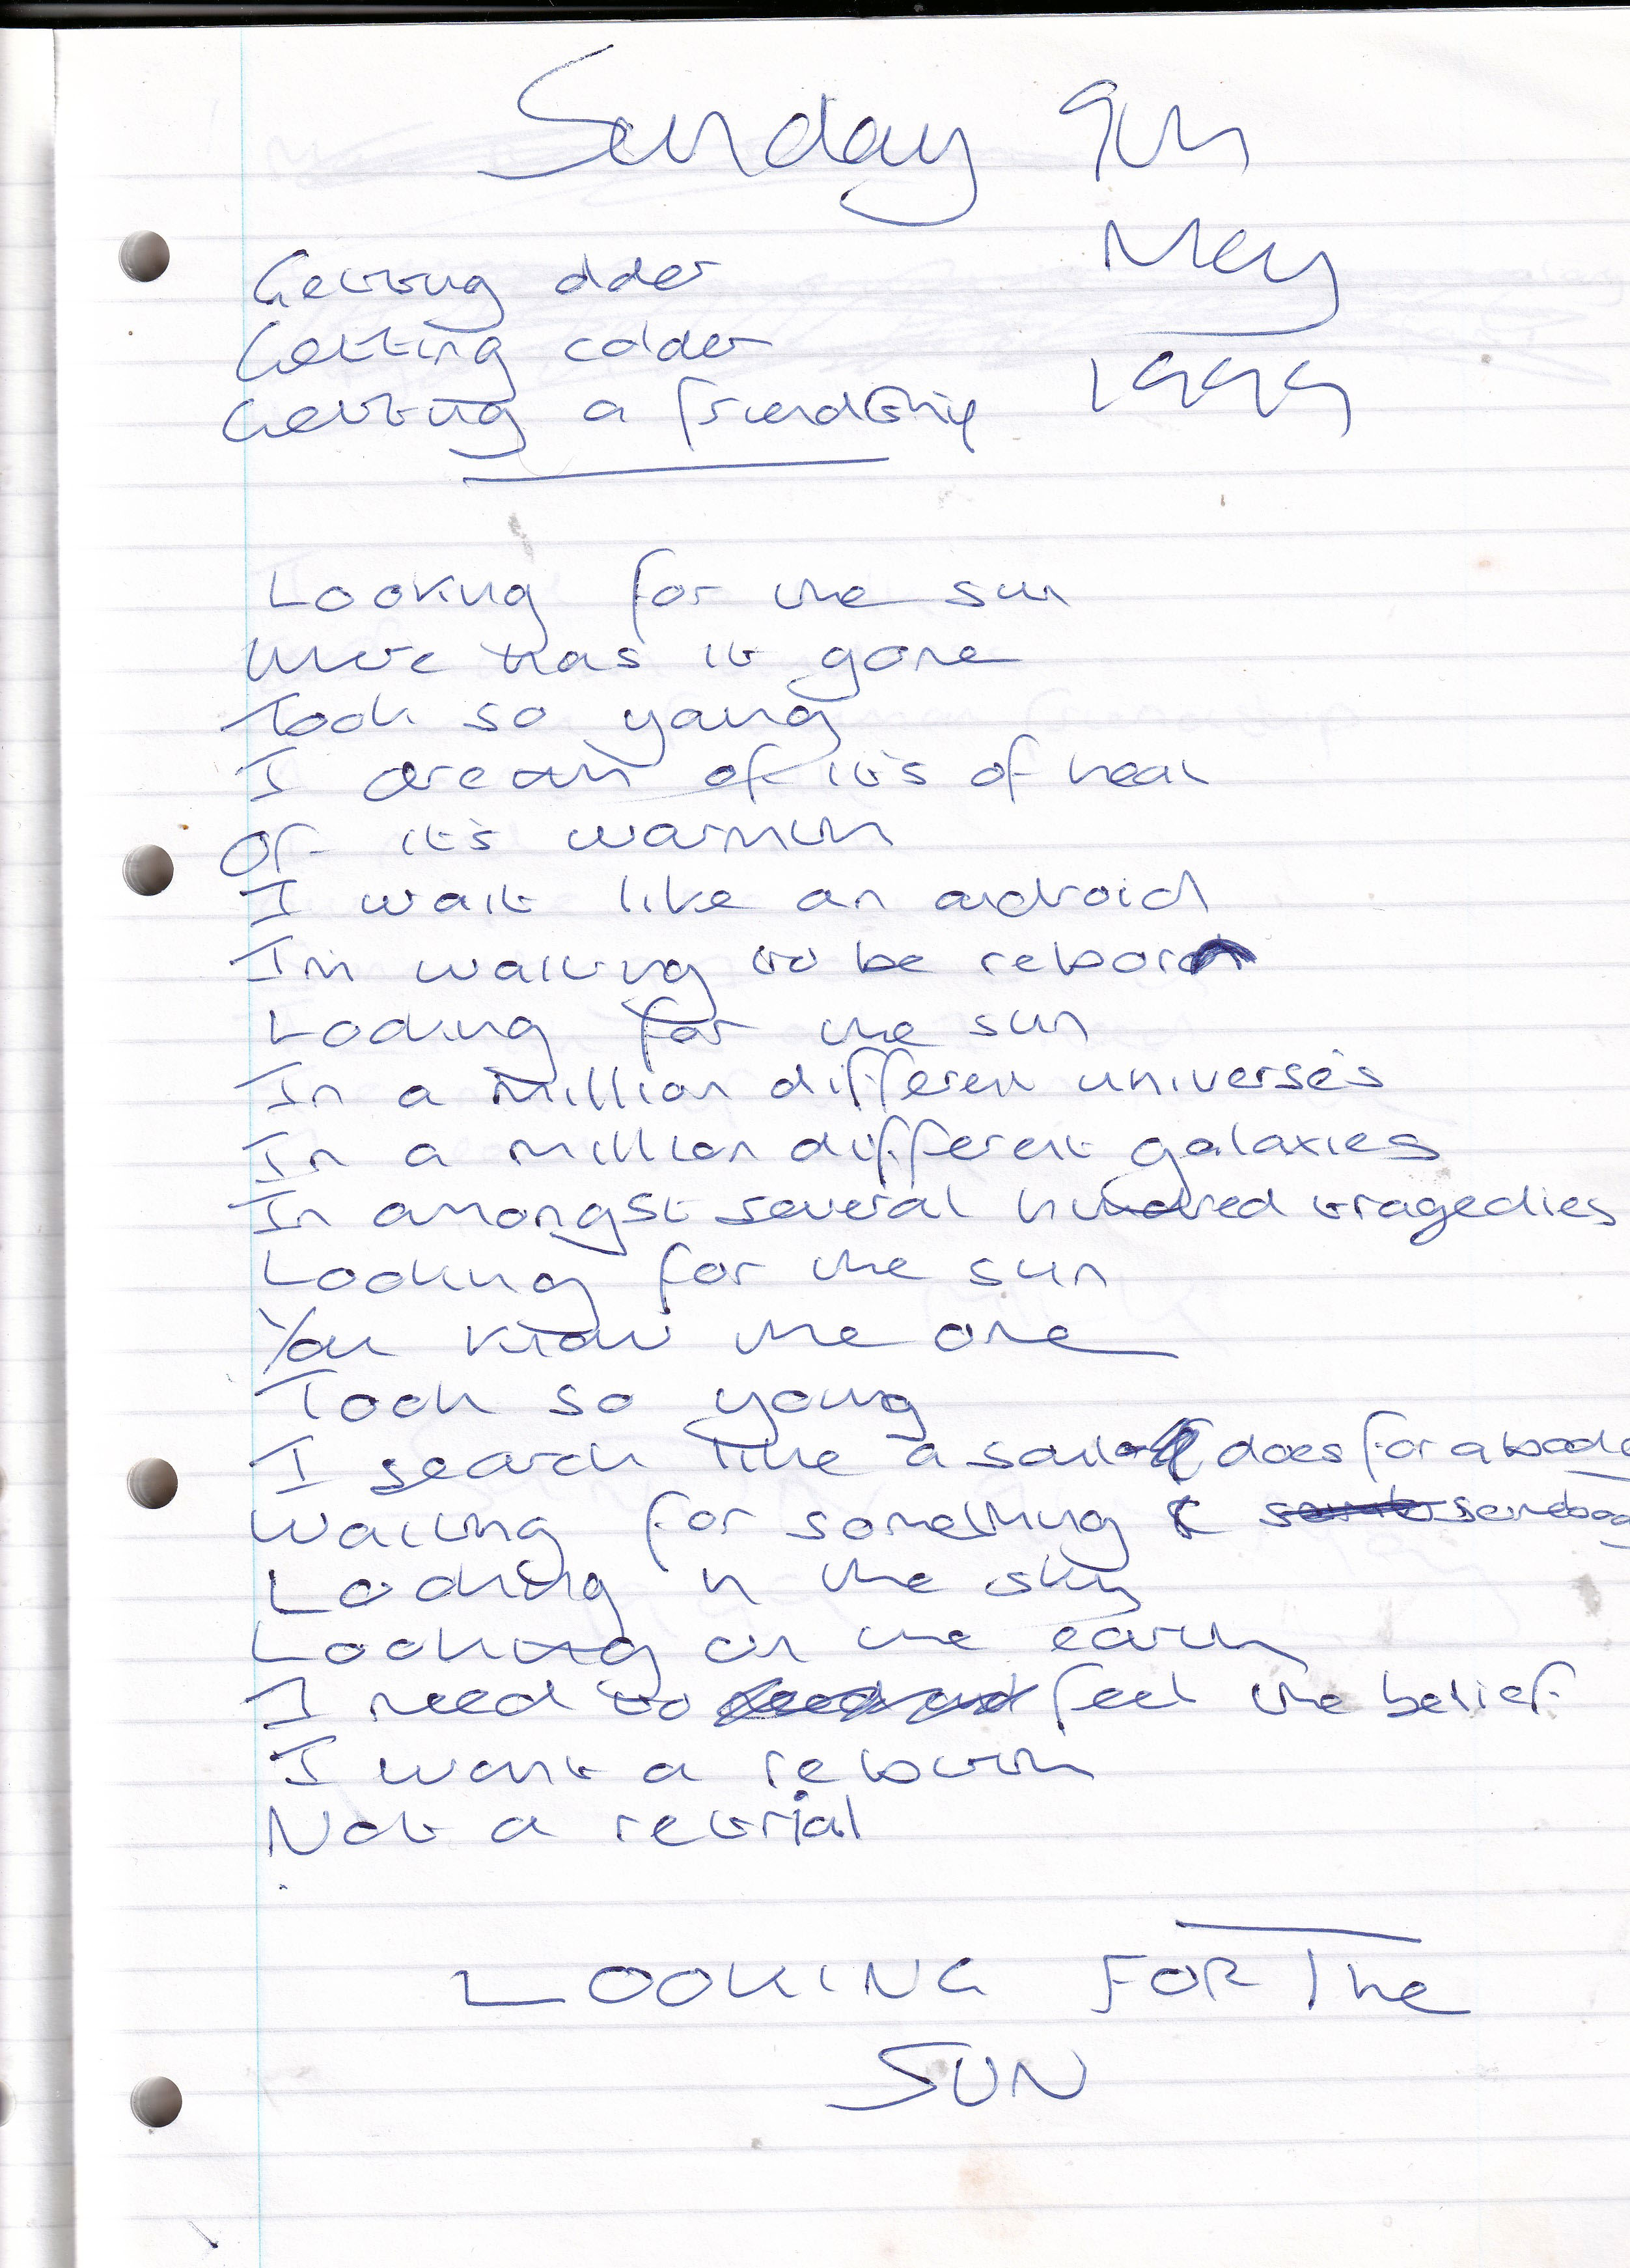 Sunday 9th
May
1999
Getting older
Getting colder
Getting a friendship
Looking for the sun
Where has it gone
Took so young
I dream of it's of heat
Of it's warmth
I wait like an android
I'm waiting to be reborn
Looking for the sun
In a million different universe's
In a million different galaxies
In amongst several hundred tragedies
Looking for the sun
You know the one
Took so young
I search like a sailor does for a
Waiting for something &
Looking in the sky
Looking on the earth
I need to feel the belief
I want a rebirth
Not a retrial
LOOKING FOR The
SUN